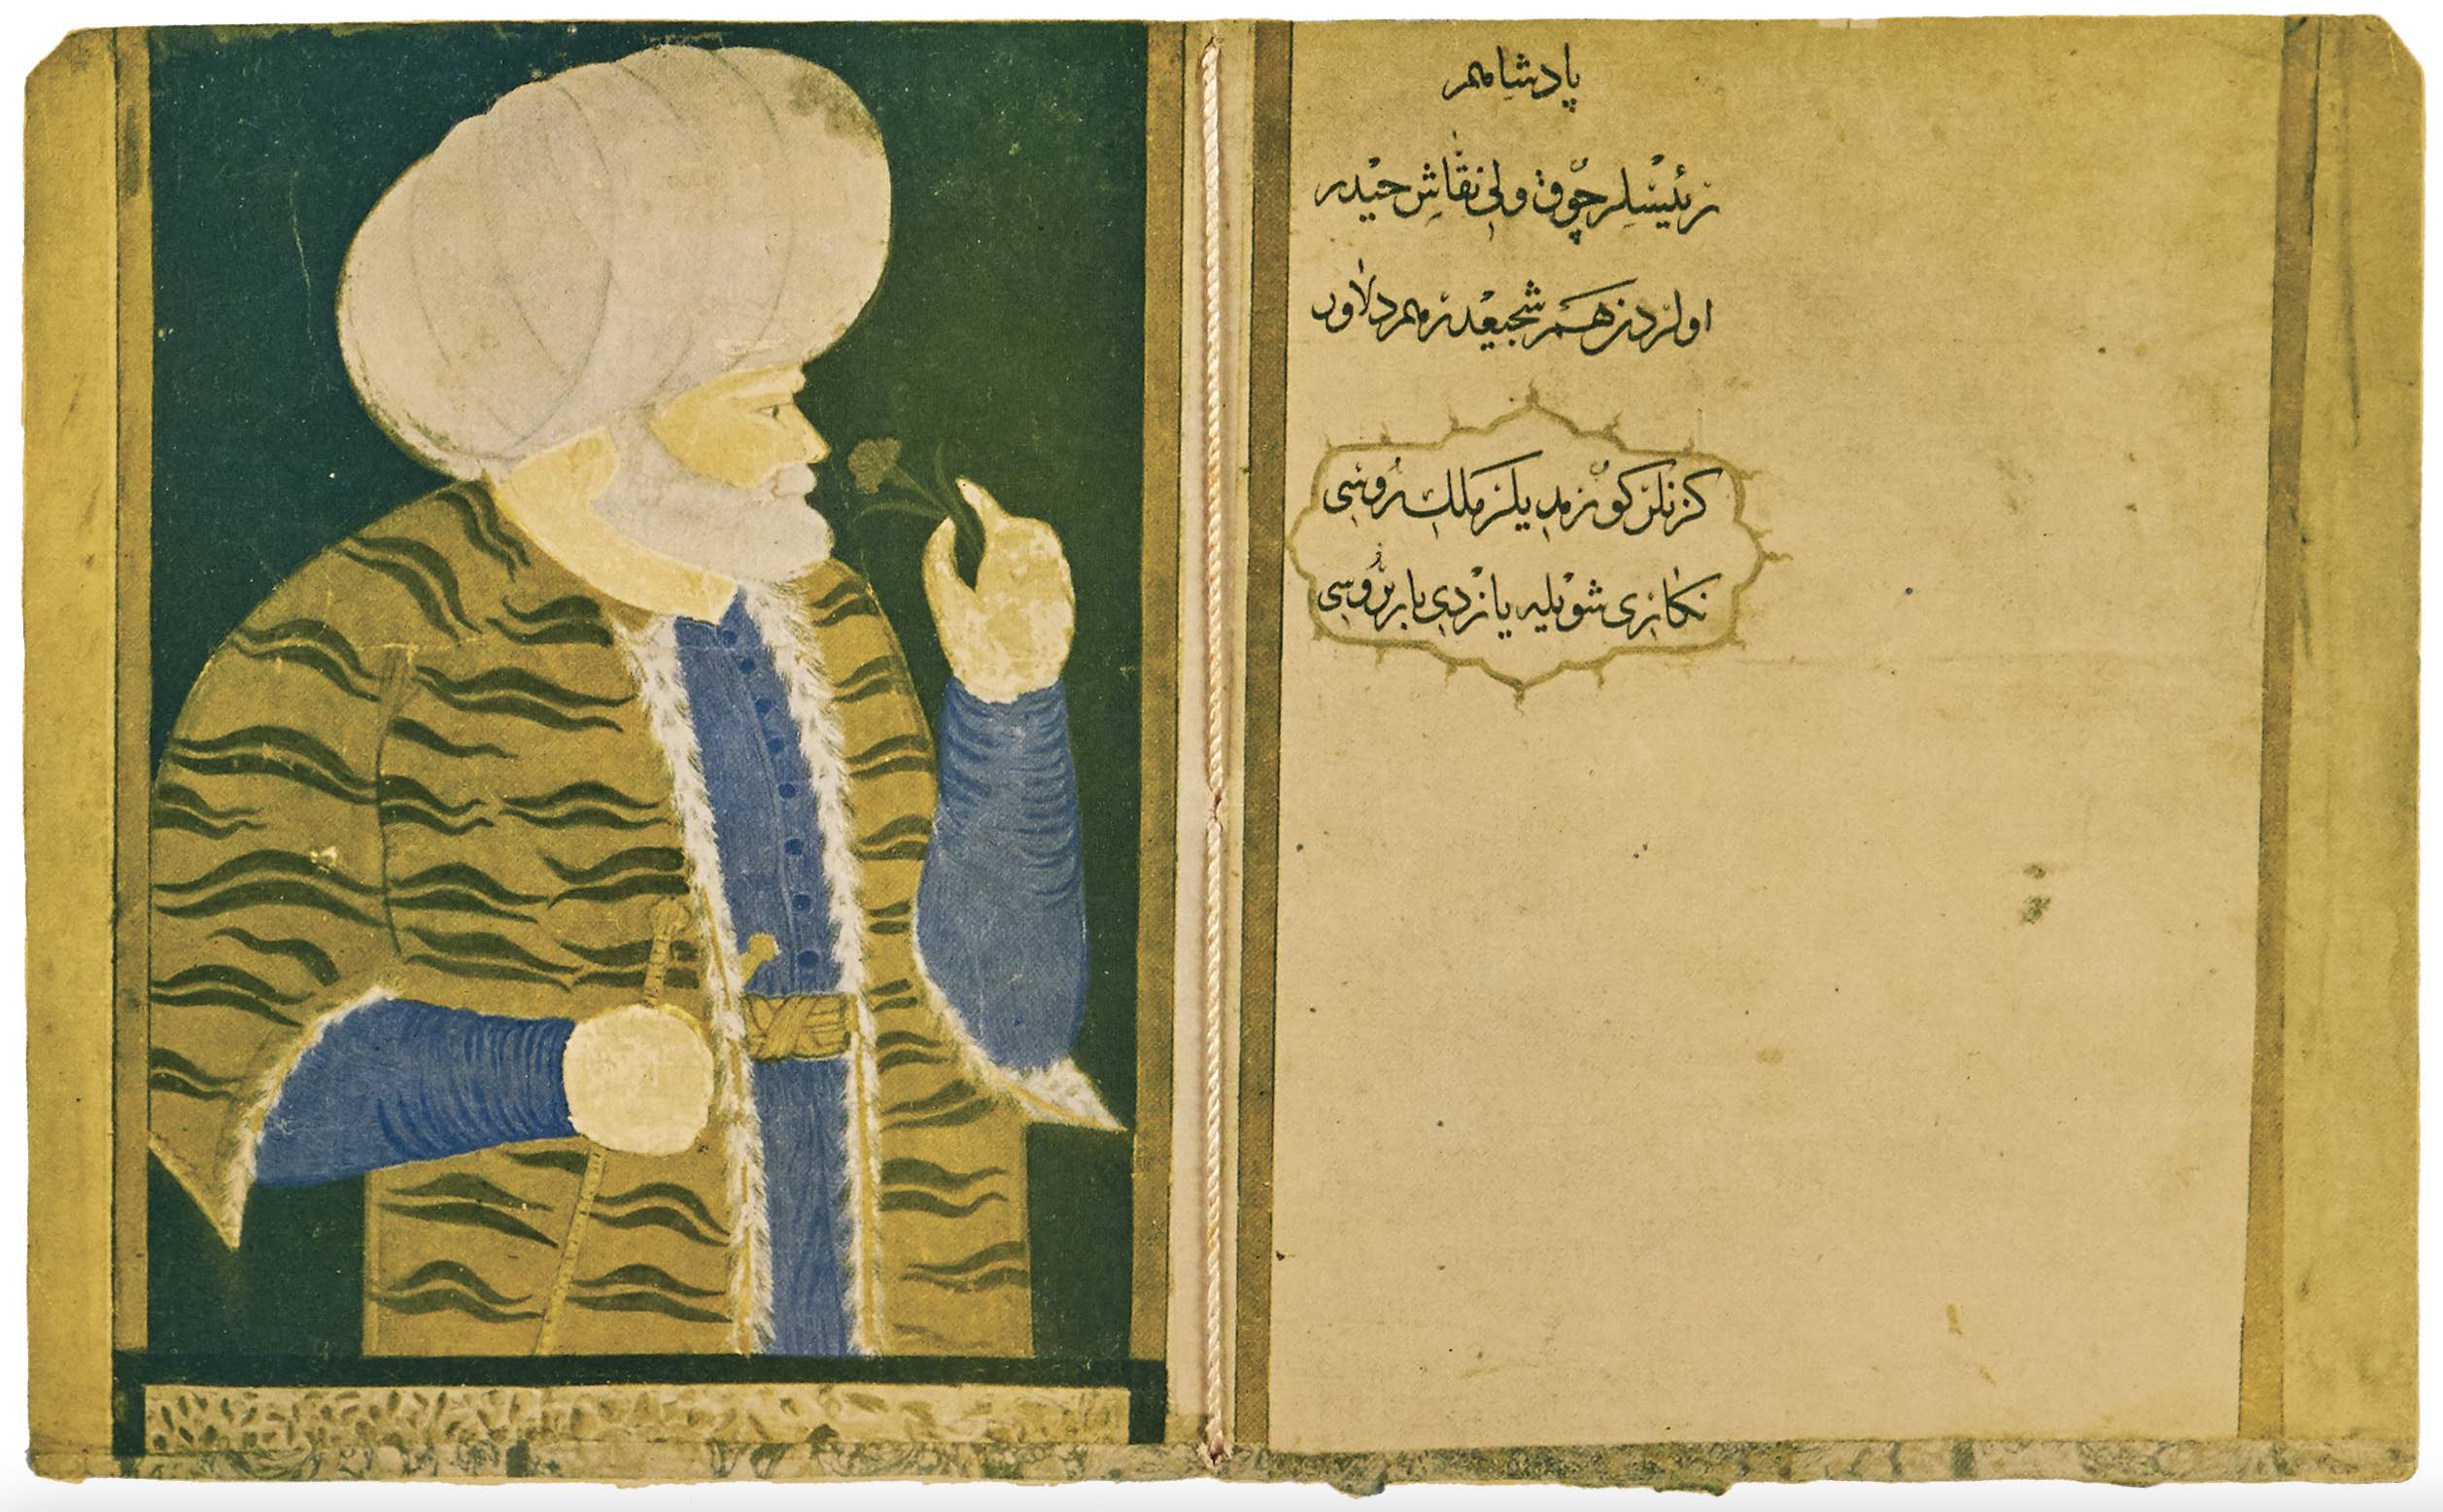 پادشاهم
رئیسلر چوق ولی نقاش حیدر
اولردن هم شجیعدر هم دلاور
کزنلر کورمدیلر ملک روسی
نکاری شویله یازدی باربروسی